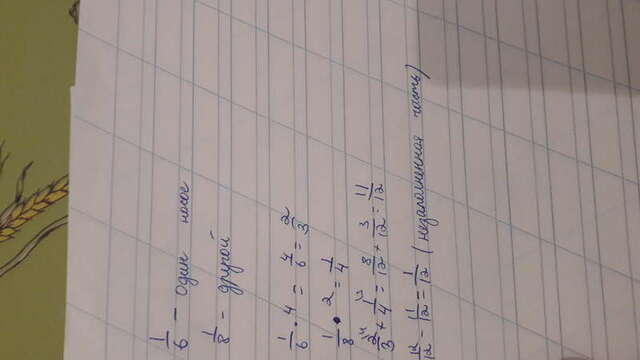 1/6 – один насос
1/8 – другой
1/6 · 4 = 4/6 = 2/3
1/8 · 2 = 1/4
2/3 + 1/4 = 8/12 + 3/12 = 11/12
12/12 – 11/12 = 1/12 (незаполненная часть)